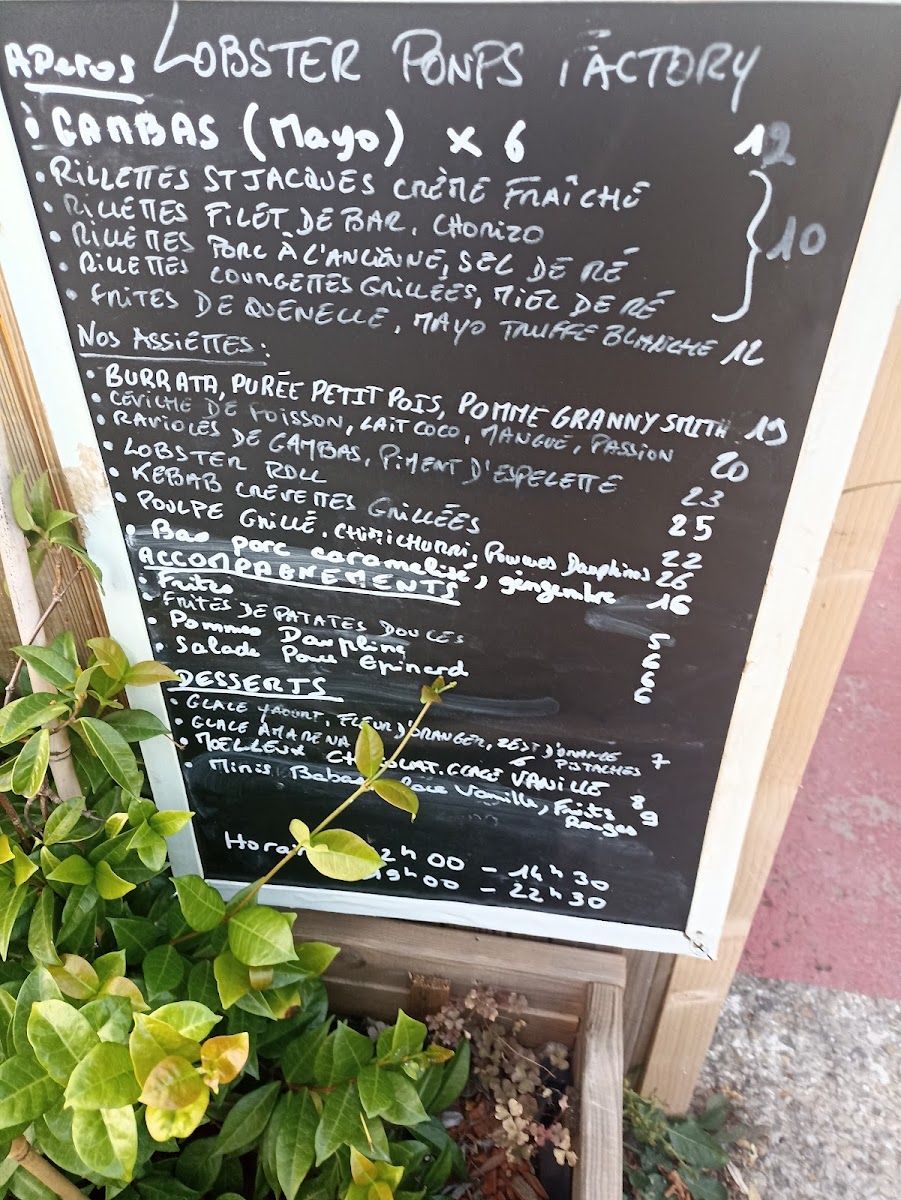 APeros LOBSTER PONPS FACTORY
• GAMBAS (Mayo) x 6 12
• RILLETTES ST JACQUES CRÈME FRAÎCHE
• RILLETTES FILET DE BAR, CHORIZO
• RILLETTES PORC À L'ANCIENNE, SEL DE RÉ 10
• RILLETTES COURGETTES GRILLÉES, MIEL DE RÉ
• FRITES DE QUENELLE, MAYO TRUFFE BLANCHE 12
NOS ASSIETTES :
• BURRATA, PURÉE PETIT POIS, POMME GRANNY SMITH 19
• CEVICHE DE POISSON, LAIT COCO, MANGUE, PASSION 20
• RAVIOLES DE GAMBAS, PIMENT D'ESPELETTE 23
• LOBSTER ROLL 25
• KEBAB CREVETTES GRILLÉES 22
• POULPE GRILLÉ, CHIMICHURRI, Pommes Dauphines 26
• Bao porc caramelisé, gingembre 16
ACCOMPAGNEMENTS
• Frites 5
• FRITES DE PATATES DOUCES 6
• Pommes Dauphine 6
• Salade Pouss Epinard 6
DESSERTS
• GLACE YAOURT, FLEUR D'ORANGER, ZEST D'ORANGE 7
• GLACE AMARENA PISTACHES
• MOELLEUX CHOCOLAT, GLACE VANILLE 8
• Minis Babas Vanille, Fruits Rouges 9
2h00 - 14h30
19h00 - 22h30